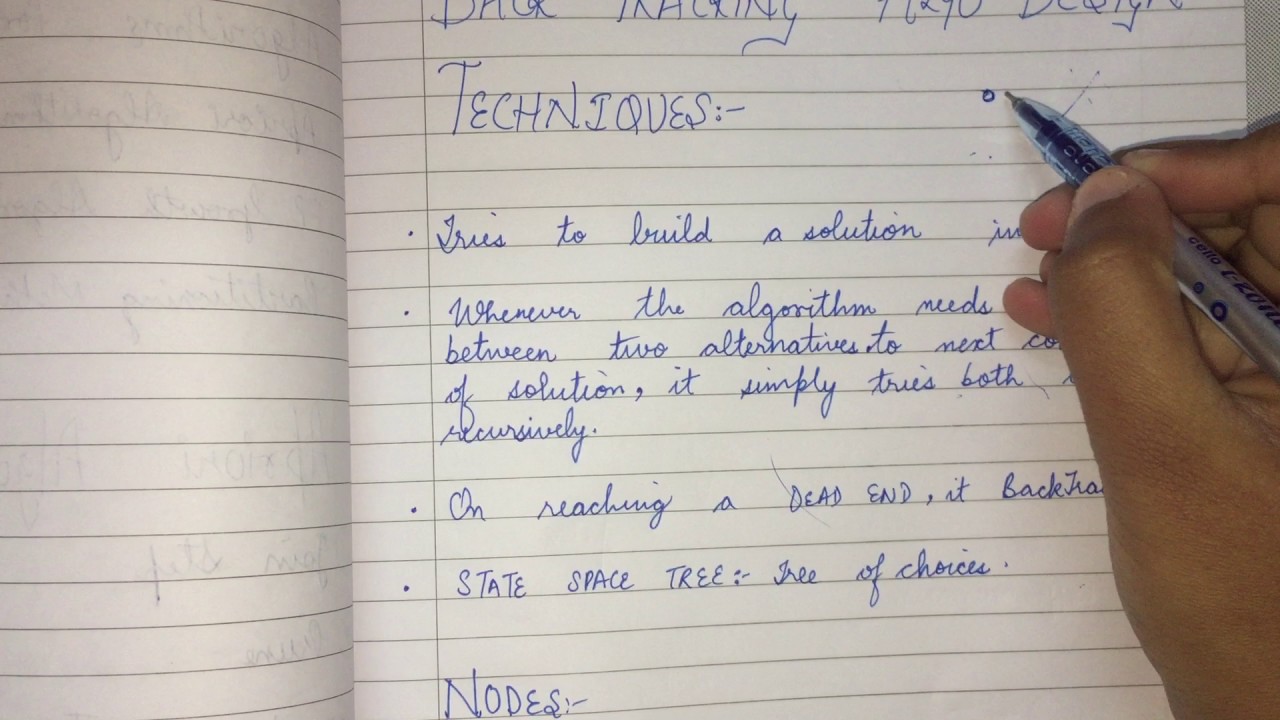 BACK TRACKING Algo DESIGN
TECHNIQUES:-
• Tries to build a solution in
• Whenever the algorithm needs
between two alternatives to next co
of solution, it simply tries both
recursively.
• On reaching a DEAD END, it BackTra
• STATE SPACE TREE:- Tree of choices.
NODES:-
cello